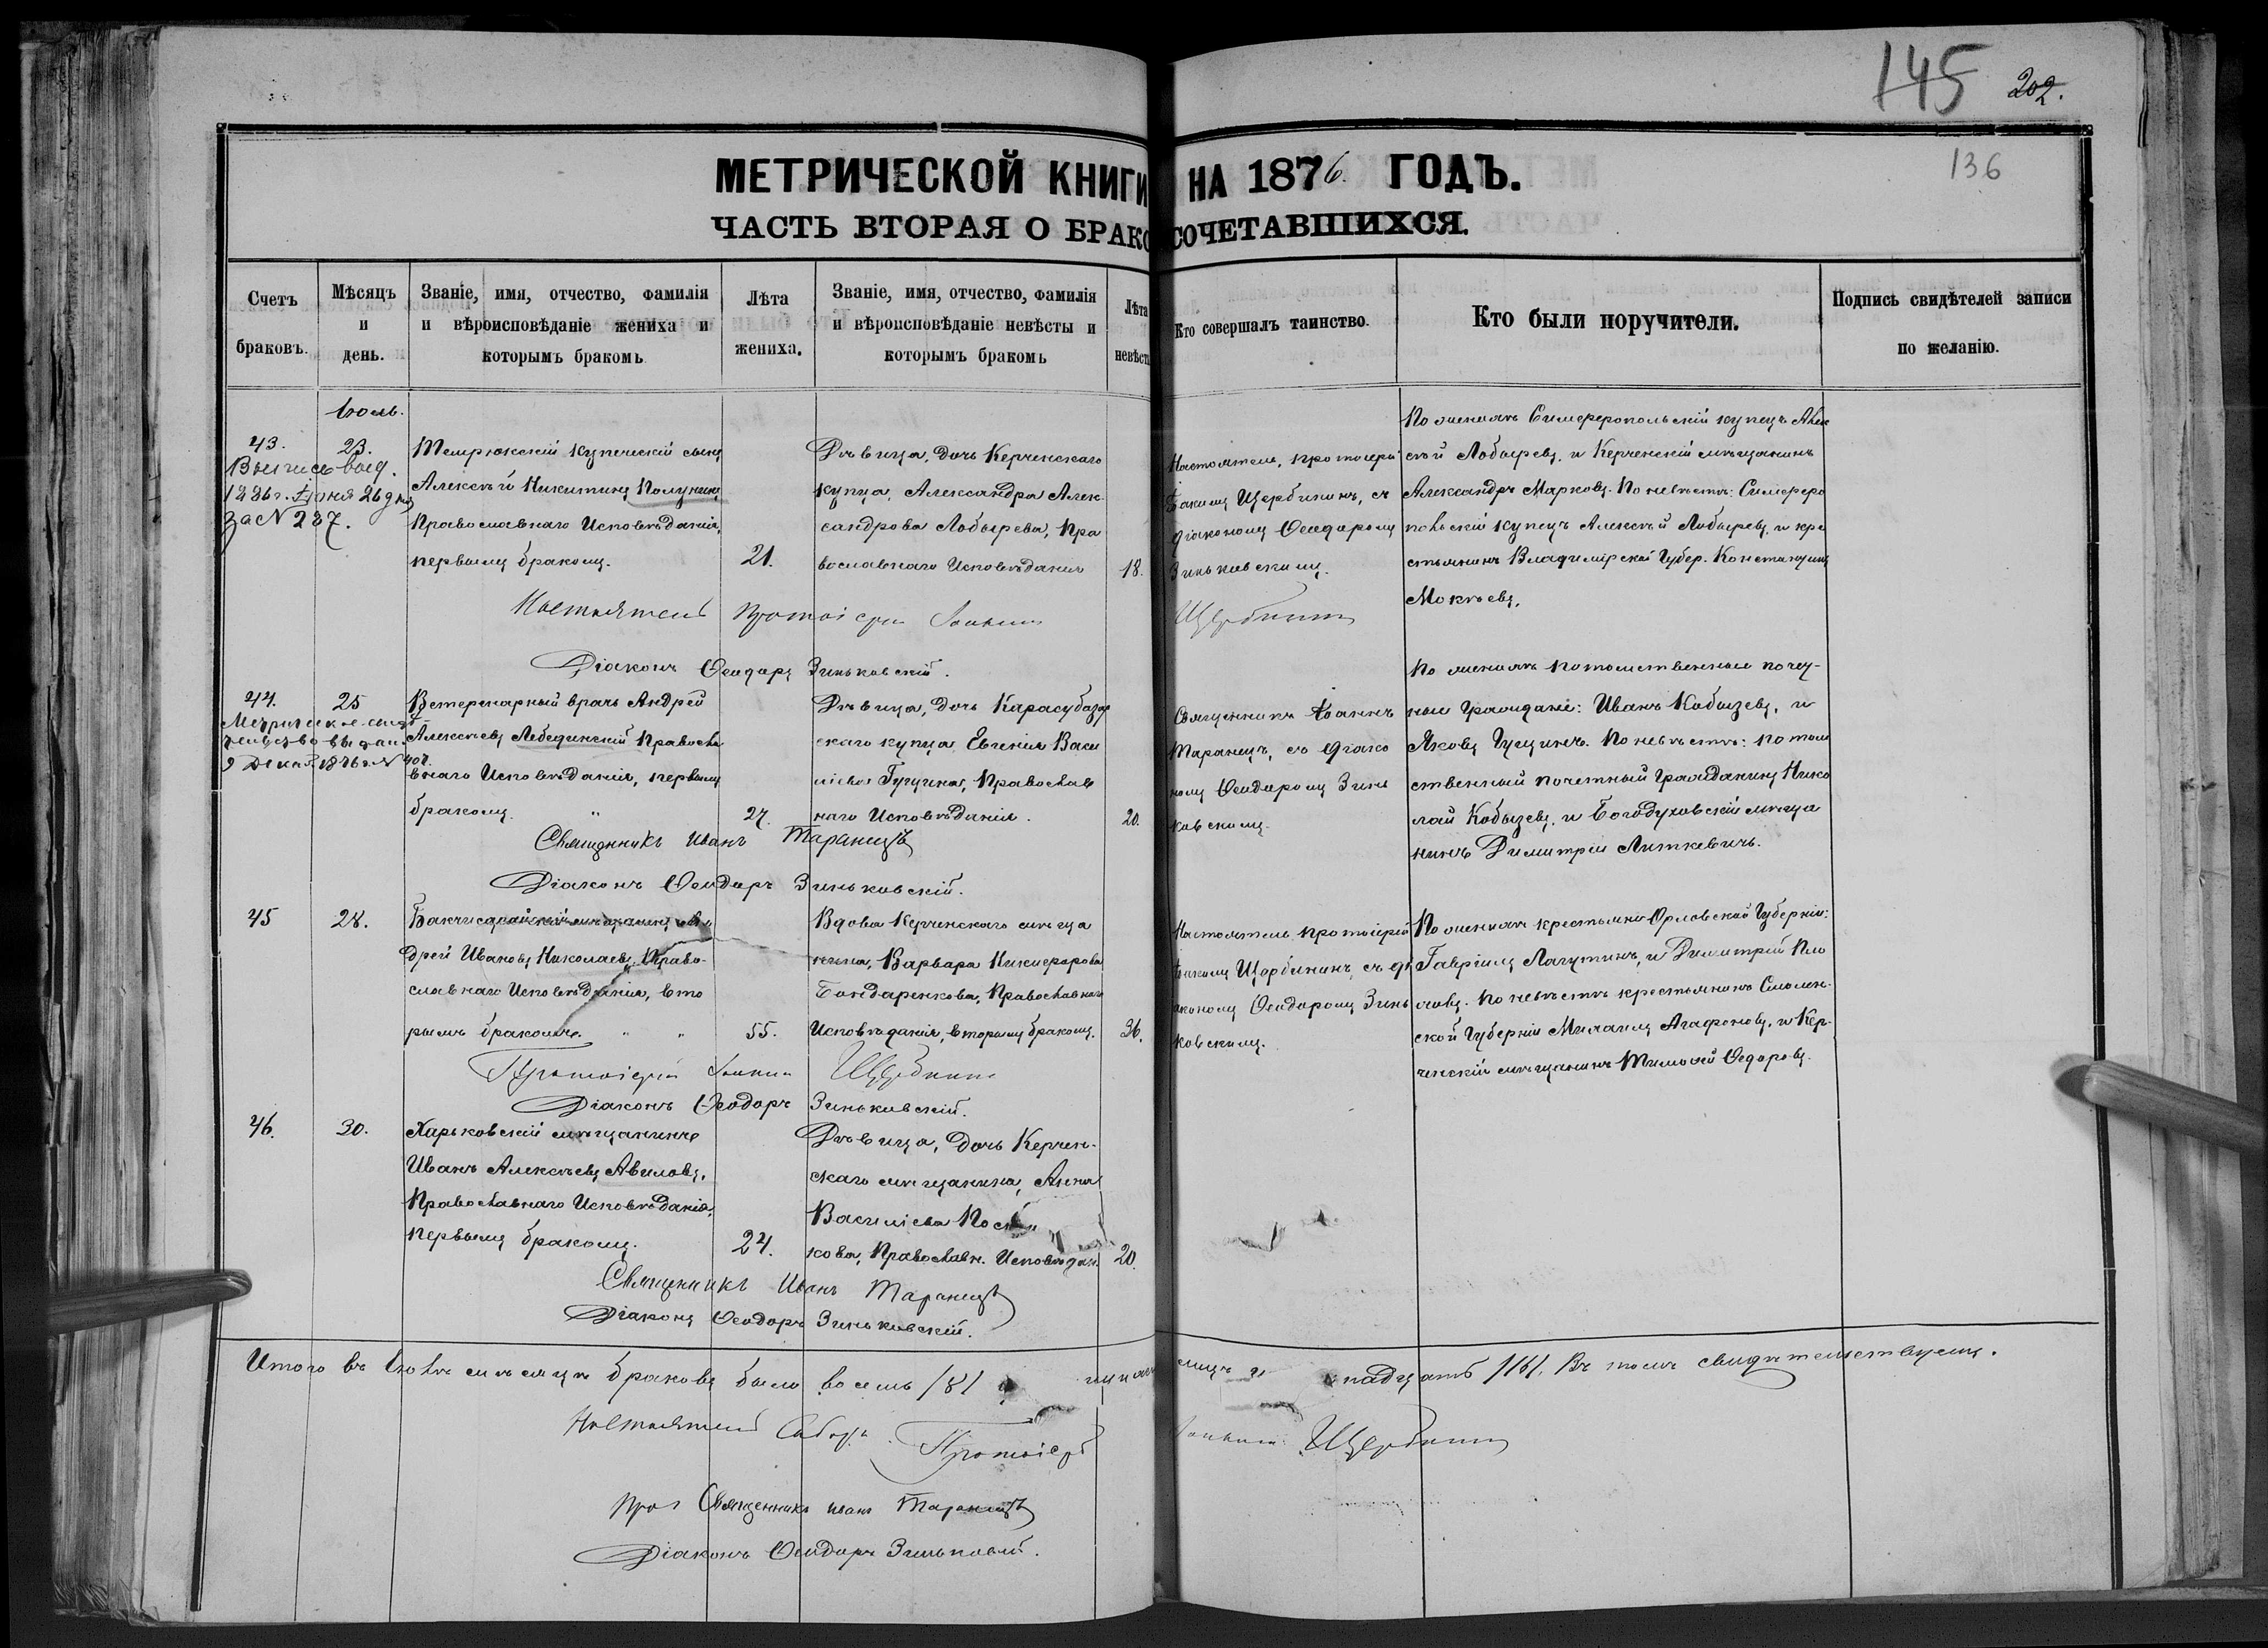 145 202.
136
МЕТРИЧЕСКОЙ КНИГИ НА 1876. ГОДЪ.
ЧАСТЬ ВТОРАЯ О БРАКОСОЧЕТАВШИХСЯ.
Счетъ браковъ.
Мѣсяцъ и день.
Званіе, имя, отчество, фамилія
и вѣроисповѣданіе жениха и
которымъ бракомъ
Лѣта
жениха.
Званіе, имя, отчество, фамилія
и вѣроисповѣданіе невѣсты и
которымъ бракомъ
Лѣта
невѣст
Кто совершалъ таинство.
Кто были поручители.
Подпись свидѣтелей записи
по желанію.
Іюль.
43.
Выпись выд.
1886 г. Іюня 26 дня
за N 287.
23.
Темрюкскій купеческій сынъ
Алексѣй Никитинъ Полунинъ
Православнаго Исповѣданія,
первымъ бракомъ.
21.
Дѣвица, дочь Керченскаго
купца, Александра Алек-
сандрова Лобырева, Пра
вославнаго Исповѣданія
18.
Настоятель, протоіерей
Іакимъ Щербининъ, съ
діакономъ Ѳеодоромъ
Зиньковскимъ.
По женихѣ Симферопольскій купецъ Алек
сѣй Лобыревъ, и Керченскій мѣщанинъ
Александръ Марковъ. По невѣстѣ: Симферо
польскій купецъ Алексѣй Лобыревъ, и кре
стьянинъ Владимірской Губер. Константинъ
Мокѣевъ.
Настоятель Протоіерей Іоакимъ Щербининъ
Діаконъ Ѳеодоръ Зиньковскій.
44.
Метрическое свидѣ-
тельство выдан.
9 Декаб. 1876 г. N 407.
25
Ветеренарный врачъ Андрей
Алексѣевъ Лебединскій Правосла
внаго Исповѣданія, первымъ
бракомъ. "
27.
Дѣвица, дочь Карасубазар
скаго купца Евгенія Васи
ліева Гущина, Православ
наго Исповѣданія.
20.
Священникъ Іоаннъ
Таранецъ, съ діако
номъ Ѳеодоромъ Зинь
ковскимъ.
По женихѣ потомственные почет-
ные Граждане: Иванъ Кобызевъ, и
Яковъ Гущинъ. По невѣстѣ: потом
ственный почетный Гражданинъ Нико
лай Кобызевъ, и Богодуховскій мѣща
нинъ Димитрій Литкевичъ.
Священникъ Иванъ Таранецъ
Діаконъ Ѳеодоръ Зиньковскій.
45
28.
Бахчисарайскій мѣщанинъ Ан
дрей Ивановъ Николаевъ, Право-
славнаго Исповѣданія, вто
рымъ бракомъ. " "
55.
Вдова Керченскаго мѣща
нина, Варвара Никифорова
Бондаренкова, Православнаго
Исповѣданія, вторымъ бракомъ.
36.
Настоятель протоіерей
Іакимъ Щербининъ, съ ді
акономъ Ѳеодоромъ Зинь
ковскимъ.
По женихѣ крестьяне Орловской Губерніи:
Гавріилъ Лагутинъ, и Димитрій
По невѣстѣ крестьянинъ Смолен-
ской Губерніи Михаилъ Агафоновъ, и Кер-
ченскій мѣщанинъ Тимоѳей Ѳедоровъ.
Протоіерей Іоакимъ Щербининъ
Діаконъ Ѳеодоръ Зиньковскій.
46.
30.
Харьковскій мѣщанинъ
Иванъ Алексѣевъ Авиловъ,
Православнаго Исповѣданія,
первымъ бракомъ.
24.
Дѣвица, дочь Керчен-
скаго мѣщанина, Анна
Василіева
кова, Православн. Исповѣдан.
20.
Священникъ Иванъ Таранецъ
Діаконъ Ѳеодоръ Зиньковскій.
Итого въ Іюлѣ мѣсяцѣ браковъ было восемь /8/ /16/. Въ томъ свидѣтельствуемъ.
Настоятель Собора Протоіерей Іоакимъ Щербининъ
Священникъ Иванъ Таранецъ
Діаконъ Ѳеодоръ Зиньковскій.